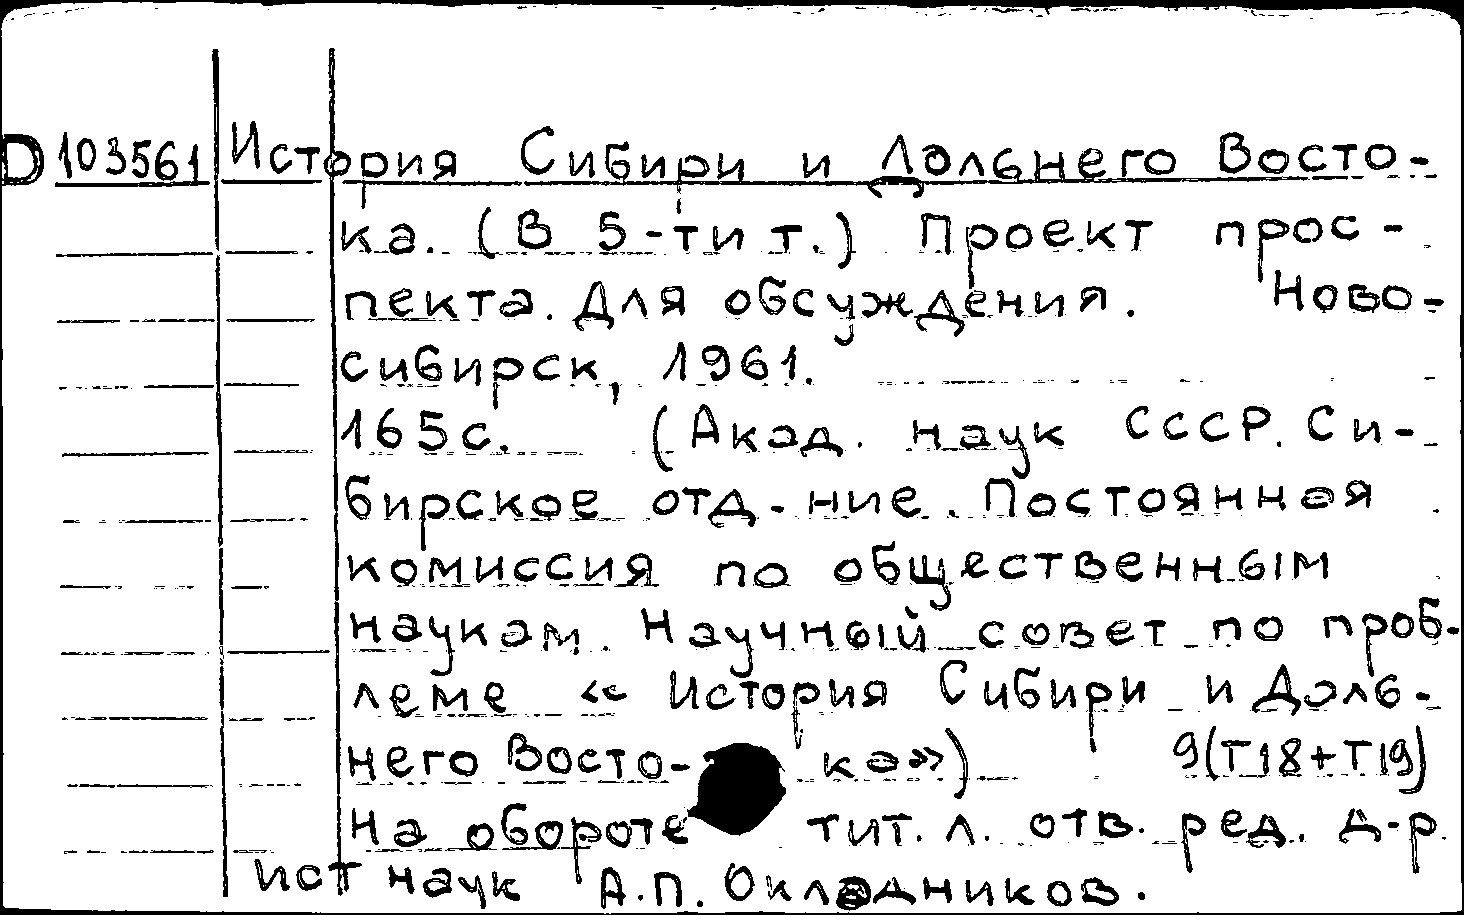 D 103561 История Сибири и Дальнего Восто-
ка. (В 5-ти т.) Проект прос-
пекта. Для обсуждения. Ново-
сибирск, 1961.
165с. (Акад. наук СССР. Си-
бирское отд-ние. Постоянная
комиссия по общественным
наукам. Научный совет по проб-
леме «История Сибири и Даль-
него Восто- ка») 9(Т18+Т19)
На обороте тит. л. отв. ред. д-р
ист наук А.П. Окладников.